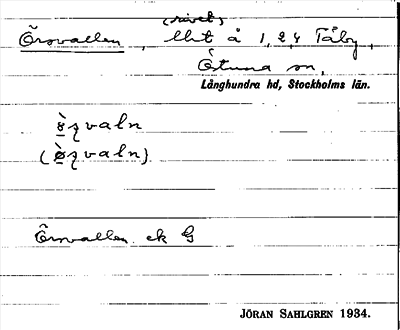 (rivet)
Örsvallen, lht å 1, 2, 4 Täby,
Östuna sn,
Långhundra hd, Stockholms län.
ö̀ʒvaln
(ø̀ʒvaln)
Örsvallen ek G
JÖRAN SAHLGREN 1934.